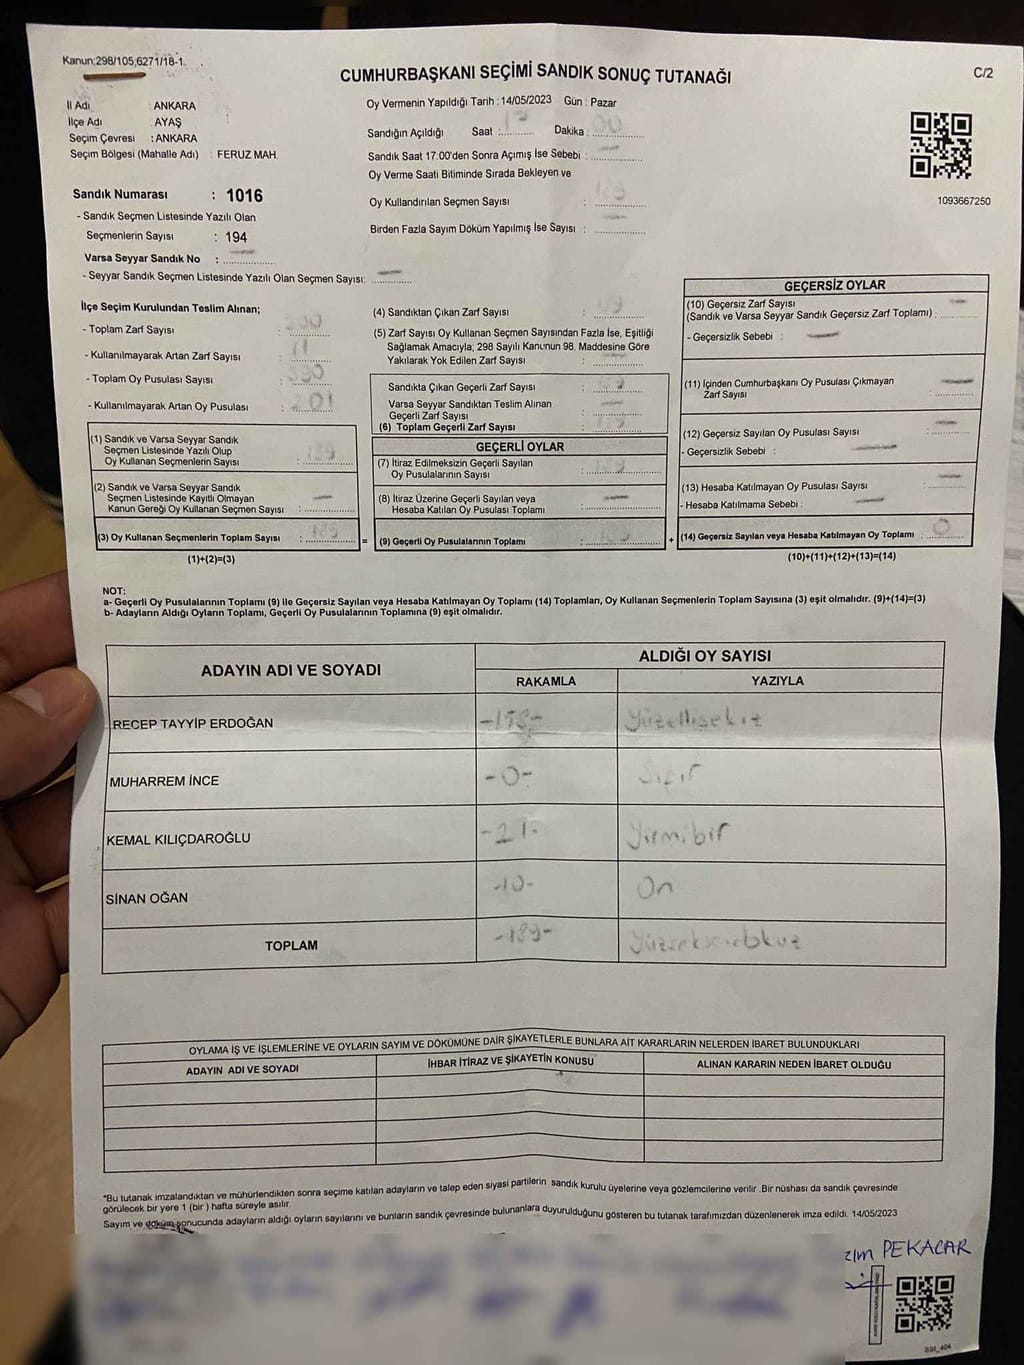 Kanun;298/105,6271/18-1.
CUMHURBAŞKANI SEÇİMİ SANDIK SONUÇ TUTANAĞI
C/2
İl Adı : ANKARA
İlçe Adı : AYAŞ
Seçim Çevresi : ANKARA
Seçim Bölgesi (Mahalle Adı) : FERUZ MAH.
Sandık Numarası : 1016
- Sandık Seçmen Listesinde Yazılı Olan
Seçmenlerin Sayısı : 194
Varsa Seyyar Sandık No :
- Seyyar Sandık Seçmen Listesinde Yazılı Olan Seçmen Sayısı:
Oy Vermenin Yapıldığı Tarih : 14/05/2023 Gün : Pazar
Sandığın Açıldığı Saat : 17 Dakika : 00
Sandık Saat 17:00'den Sonra Açımış İse Sebebi :
Oy Verme Saati Bitiminde Sırada Bekleyen ve
Oy Kullandırılan Seçmen Sayısı :
Birden Fazla Sayım Döküm Yapılmış İse Sayısı :
1093667250
İlçe Seçim Kurulundan Teslim Alınan;
- Toplam Zarf Sayısı :
- Kullanılmayarak Artan Zarf Sayısı : 11
- Toplam Oy Pusulası Sayısı : 390
- Kullanılmayarak Artan Oy Pusulası : 201
(1) Sandık ve Varsa Seyyar Sandık
Seçmen Listesinde Yazılı Olup
Oy Kullanan Seçmenlerin Sayısı : 189
(2) Sandık ve Varsa Seyyar Sandık
Seçmen Listesinde Kayıtlı Olmayan
Kanun Gereği Oy Kullanan Seçmen Sayısı :
(3) Oy Kullanan Seçmenlerin Toplam Sayısı : 189
(1)+(2)=(3)
(4) Sandıktan Çıkan Zarf Sayısı : 189
(5) Zarf Sayısı Oy Kullanan Seçmen Sayısından Fazla İse, Eşitliği
Sağlamak Amacıyla; 298 Sayılı Kanunun 98. Maddesine Göre
Yakılarak Yok Edilen Zarf Sayısı :
Sandıkta Çıkan Geçerli Zarf Sayısı : 189
Varsa Seyyar Sandıktan Teslim Alınan
Geçerli Zarf Sayısı :
(6) Toplam Geçerli Zarf Sayısı : 189
GEÇERLİ OYLAR
(7) İtiraz Edilmeksizin Geçerli Sayılan
Oy Pusulalarının Sayısı : 189
(8) İtiraz Üzerine Geçerli Sayılan veya
Hesaba Katılan Oy Pusulası Toplamı :
= (9) Geçerli Oy Pusulalarının Toplamı : 189
GEÇERSİZ OYLAR
(10) Geçersiz Zarf Sayısı
(Sandık ve Varsa Seyyar Sandık Geçersiz Zarf Toplamı) :
- Geçersizlik Sebebi :
(11) İçinden Cumhurbaşkanı Oy Pusulası Çıkmayan
Zarf Sayısı :
(12) Geçersiz Sayılan Oy Pusulası Sayısı :
- Geçersizlik Sebebi :
(13) Hesaba Katılmayan Oy Pusulası Sayısı :
- Hesaba Katılmama Sebebi :
+ (14) Geçersiz Sayılan veya Hesaba Katılmayan Oy Toplamı : 0
(10)+(11)+(12)+(13)=(14)
NOT:
a- Geçerli Oy Pusulalarının Toplamı (9) ile Geçersiz Sayılan veya Hesaba Katılmayan Oy Toplamı (14) Toplamları, Oy Kullanan Seçmenlerin Toplam Sayısına (3) eşit olmalıdır. (9)+(14)=(3)
b- Adayların Aldığı Oyların Toplamı, Geçerli Oy Pusulalarının Toplamına (9) eşit olmalıdır.
ADAYIN ADI VE SOYADI ALDIĞI OY SAYISI
RAKAMLA YAZIYLA
RECEP TAYYİP ERDOĞAN -158- Yüzellisekiz
MUHARREM İNCE -0- Sıfır
KEMAL KILIÇDAROĞLU -21- Yirmibir
SİNAN OĞAN -10- On
TOPLAM -189- Yüzseksendokuz
OYLAMA İŞ VE İŞLEMLERİNE VE OYLARIN SAYIM VE DÖKÜMÜNE DAİR ŞİKAYETLERLE BUNLARA AİT KARARLARIN NELERDEN İBARET BULUNDUKLARI
ADAYIN ADI VE SOYADI İHBAR İTİRAZ VE ŞİKAYETİN KONUSU ALINAN KARARIN NEDEN İBARET OLDUĞU
*Bu tutanak imzalandıktan ve mühürlendikten sonra seçime katılan adayların ve talep eden siyasi partilerin sandık kurulu üyelerine veya gözlemcilerine verilir .Bir nüshası da sandık çevresinde
görülecek bir yere 1 (bir ) hafta süreyle asılır.
Sayım ve döküm sonucunda adayların aldığı oyların sayılarını ve bunların sandık çevresinde bulunanlara duyurulduğunu gösteren bu tutanak tarafımızdan düzenlenerek imza edildi. 14/05/2023
zım PEKACAR